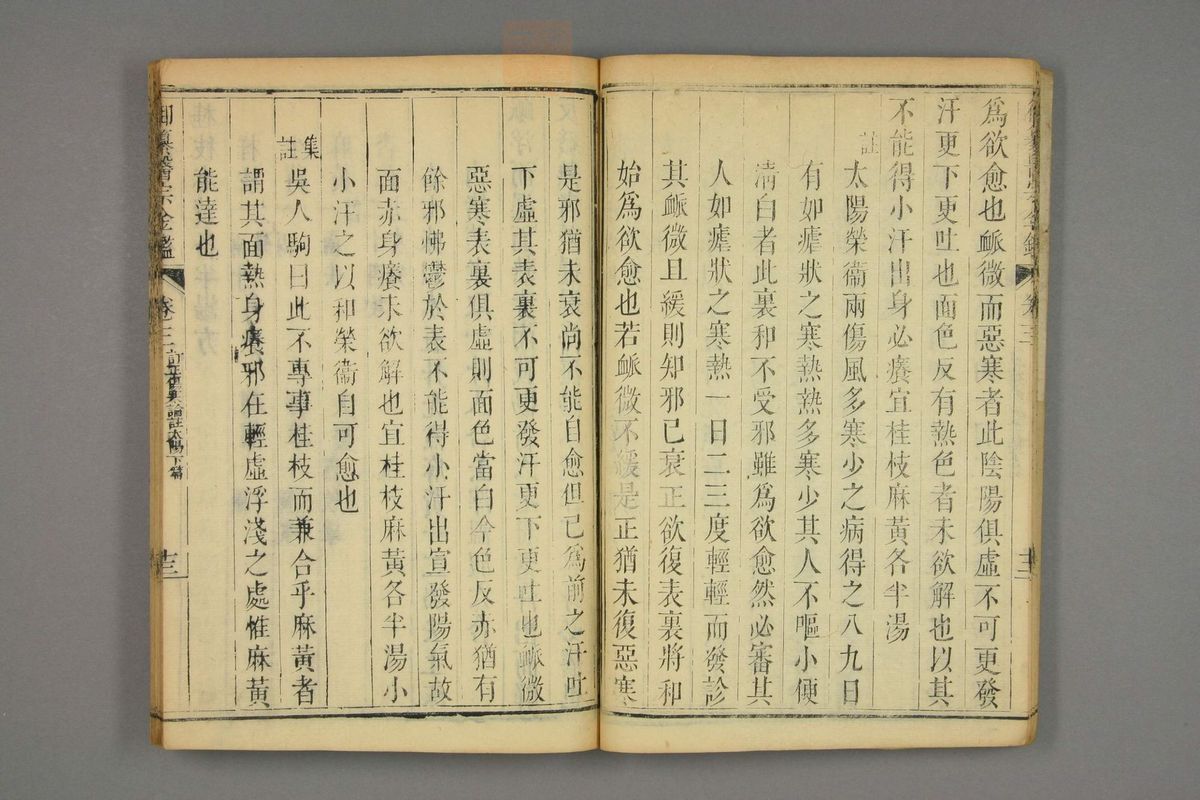 爲欲愈也脈微而惡寒者此陰陽俱虛不可更發
汗更下更吐也面色反有熱色者未欲解也以其
不能得小汗出身必癢宜桂枝麻黃各半湯
註
太陽榮衞兩傷風多寒少之病得之八九日
有如瘧狀之寒熱熱多寒少其人不嘔小便
淸白者此裏和不受邪雖爲欲愈然必審其
人如瘧狀之寒熱一日二三度輕輕而發診
其脈微且緩則知邪已衰正欲復表裏將和
始爲欲愈也若脈微不緩是正猶未復惡寒
是邪猶未衰尙不能自愈但已爲前之汗吐
下虛其表裏不可更發汗更下更吐也脈微
惡寒表裏俱虛則面色當白今色反赤猶有
餘邪怫鬱於表不能得小汗出宣發陽氣故
面赤身癢未欲解也宜桂枝麻黃各半湯小
小汗之以和榮衞自可愈也
集註
吳人駒曰此不專事桂枝而兼合乎麻黃者
謂其面熱身癢邪在輕虛浮淺之處惟麻黃
能達也
御纂醫宗金鑑
卷三
訂正傷寒論註太陽下篇
十三